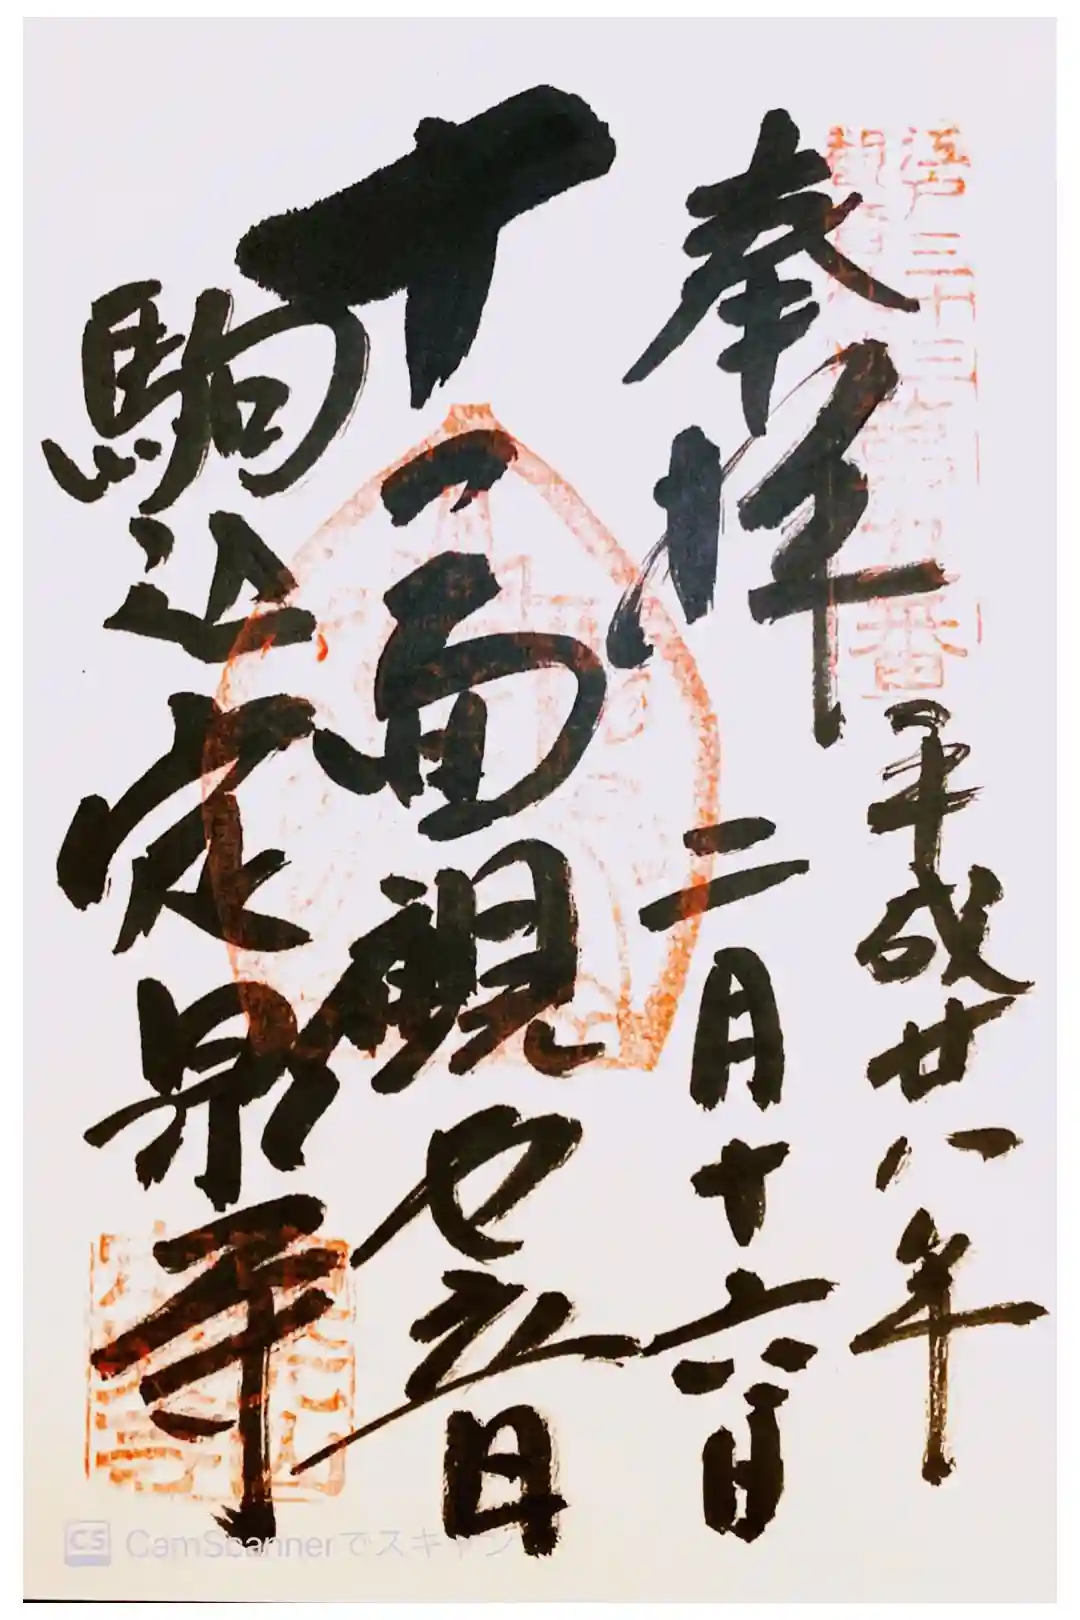 江戸三十三
番
奉拝
平成廿八年
二月十六日
十一面観世音
駒込定泉寺
CS CamScannerでスキャン